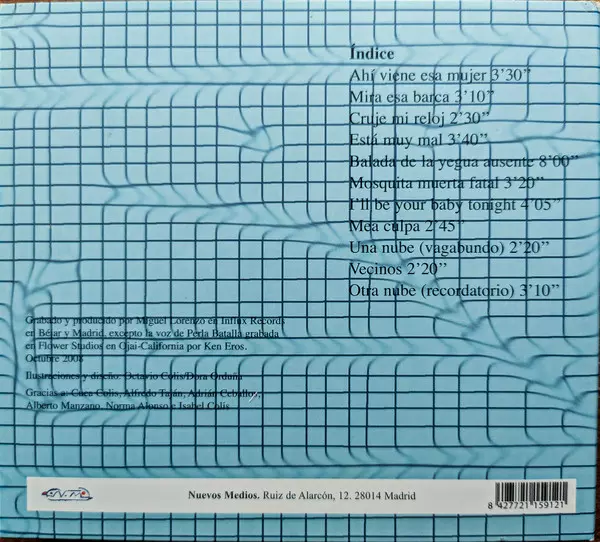 Índice
Ahí viene esa mujer 3’30’’
Mira esa barca 3’10’’
Cruje mi reloj 2’30’’
Está muy mal 3’40’’
Balada de la yegua ausente 8’00’’
Mosquita muerta fatal 3’20’’
I’ll be your baby tonight 4’05’’
Mea culpa 2’45’’
Una nube (vagabundo) 2’20’’
Vecinos 2’20’’
Otra nube (recordatorio) 3’10’’
Grabado y producido por Miguel Lorenzo en Influx Records
en Béjar y Madrid, excepto la voz de Perla Batalla grabada
en Flower Studios en Ojai-California por Ken Eros.
Octubre 2008
Ilustraciones y diseño: Octavio Colis/Dora Orduña
Gracias a: Cuca Colis, Alfredo Taján, Adrián Ceballos,
Alberto Manzano, Norma Alonso e Isabel Colís
Nuevos Medios. Ruiz de Alarcón, 12. 28014 Madrid
8 427721 159121